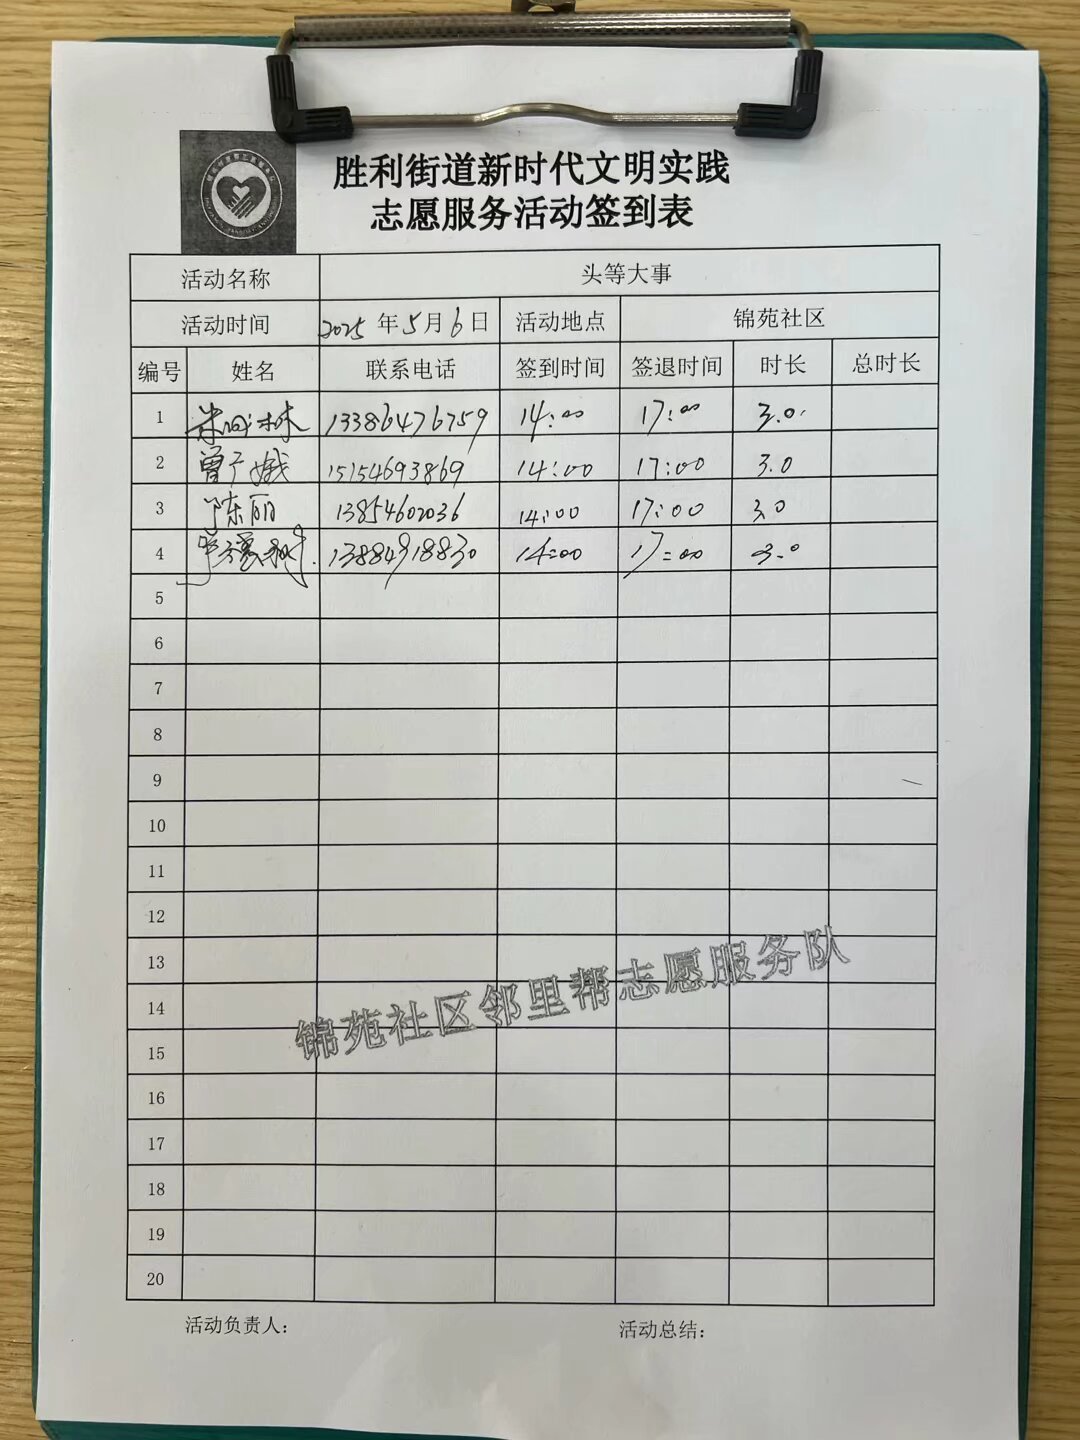 胜利街道新时代文明实践
志愿服务活动签到表
活动名称 头等大事
活动时间 2025年5月6日 活动地点 锦苑社区
编号 姓名 联系电话 签到时间 签退时间 时长 总时长
1 13386476759 14:00 17:00 3.0
2 曾广娥 15154693869 14:00 17:00 3.0
3 陈丽 13854602036 14:00 17:00 3.0
4 13884918830 14:00 17:00 3.0
5
6
7
8
9
10
11
12
13
14
15
16
17
18
19
20
锦苑社区邻里帮志愿服务队
活动负责人: 活动总结: